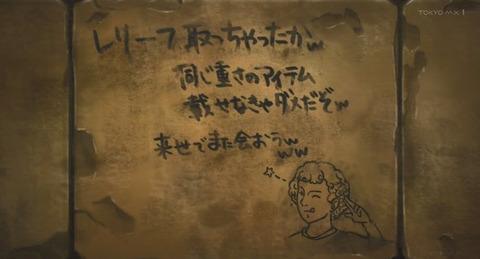 TOKYO MX 1
レリーフ取っちゃったかw
同じ重さのアイテム
載せなきゃダメだぞw
来世でまた会おうw
ww